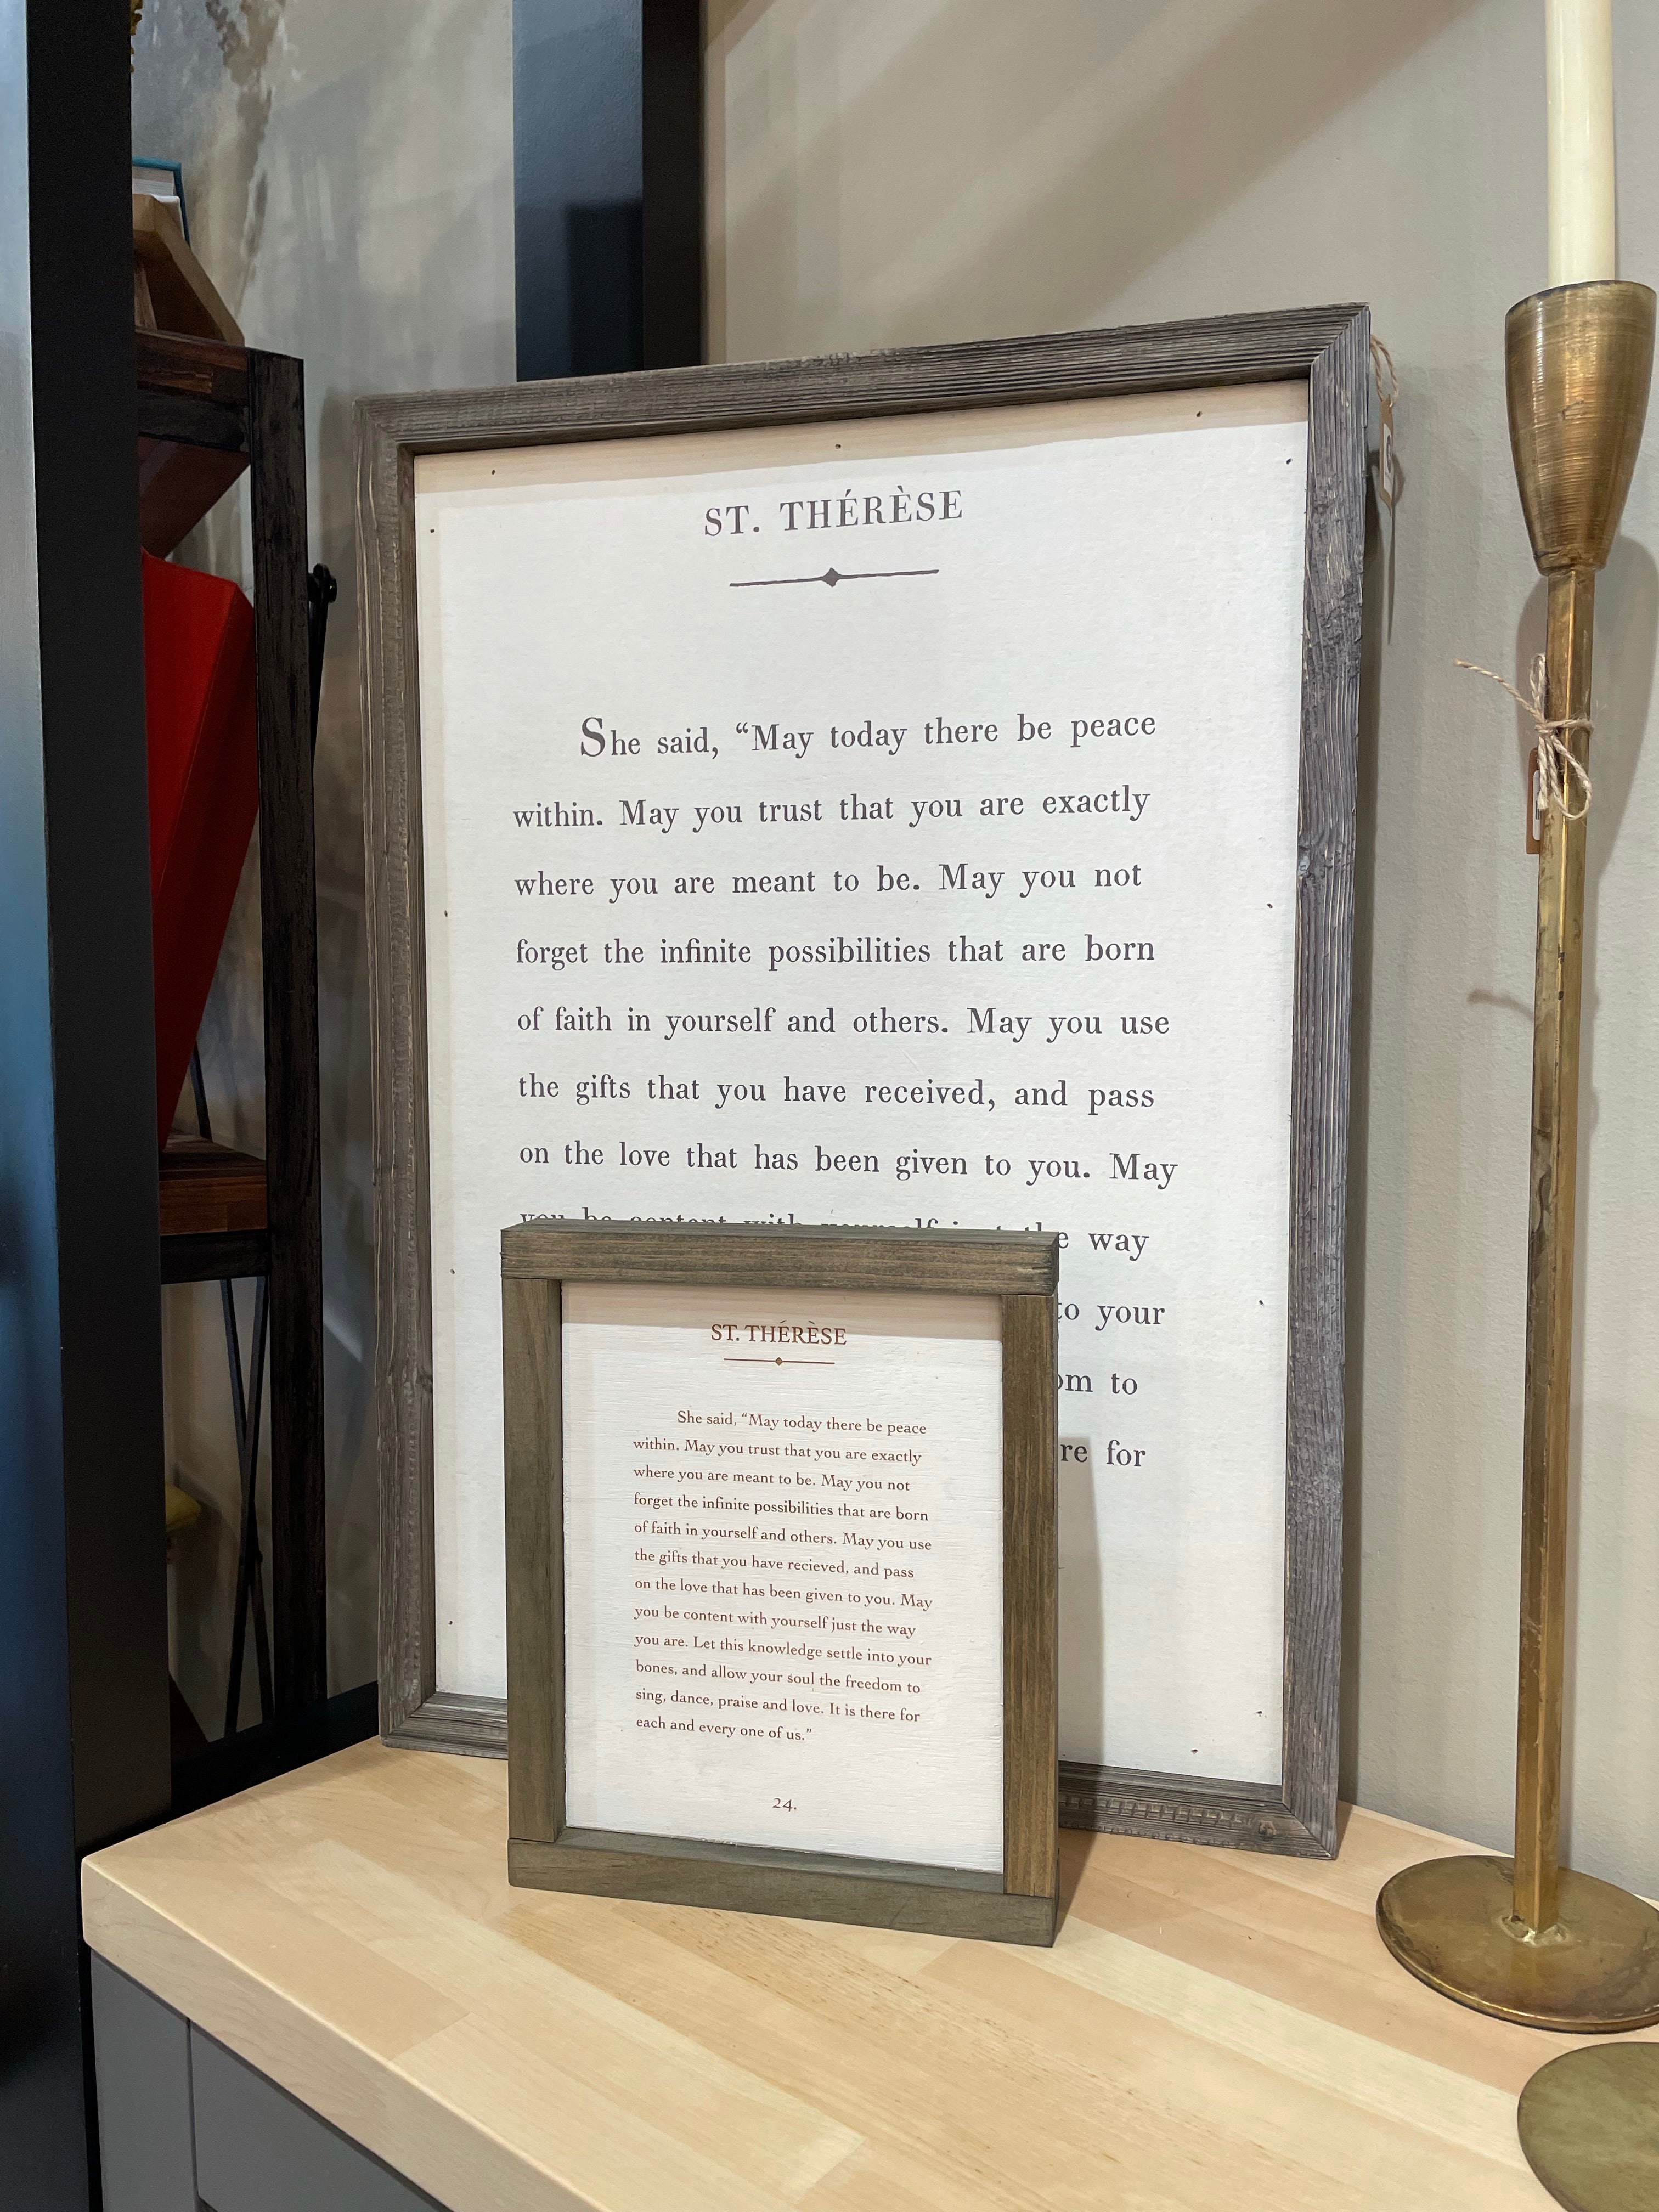 ST. THÉRÈSE
She said, “May today there be peace
within. May you trust that you are exactly
where you are meant to be. May you not
forget the infinite possibilities that are born
of faith in yourself and others. May you use
the gifts that you have received, and pass
on the love that has been given to you. May
you be content with yourself just the way
to your
to
for
ST. THÉRÈSE
She said, “May today there be peace
within. May you trust that you are exactly
where you are meant to be. May you not
forget the infinite possibilities that are born
of faith in yourself and others. May you use
the gifts that you have recieved, and pass
on the love that has been given to you. May
you be content with yourself just the way
you are. Let this knowledge settle into your
bones, and allow your soul the freedom to
sing, dance, praise and love. It is there for
each and every one of us.”
24.